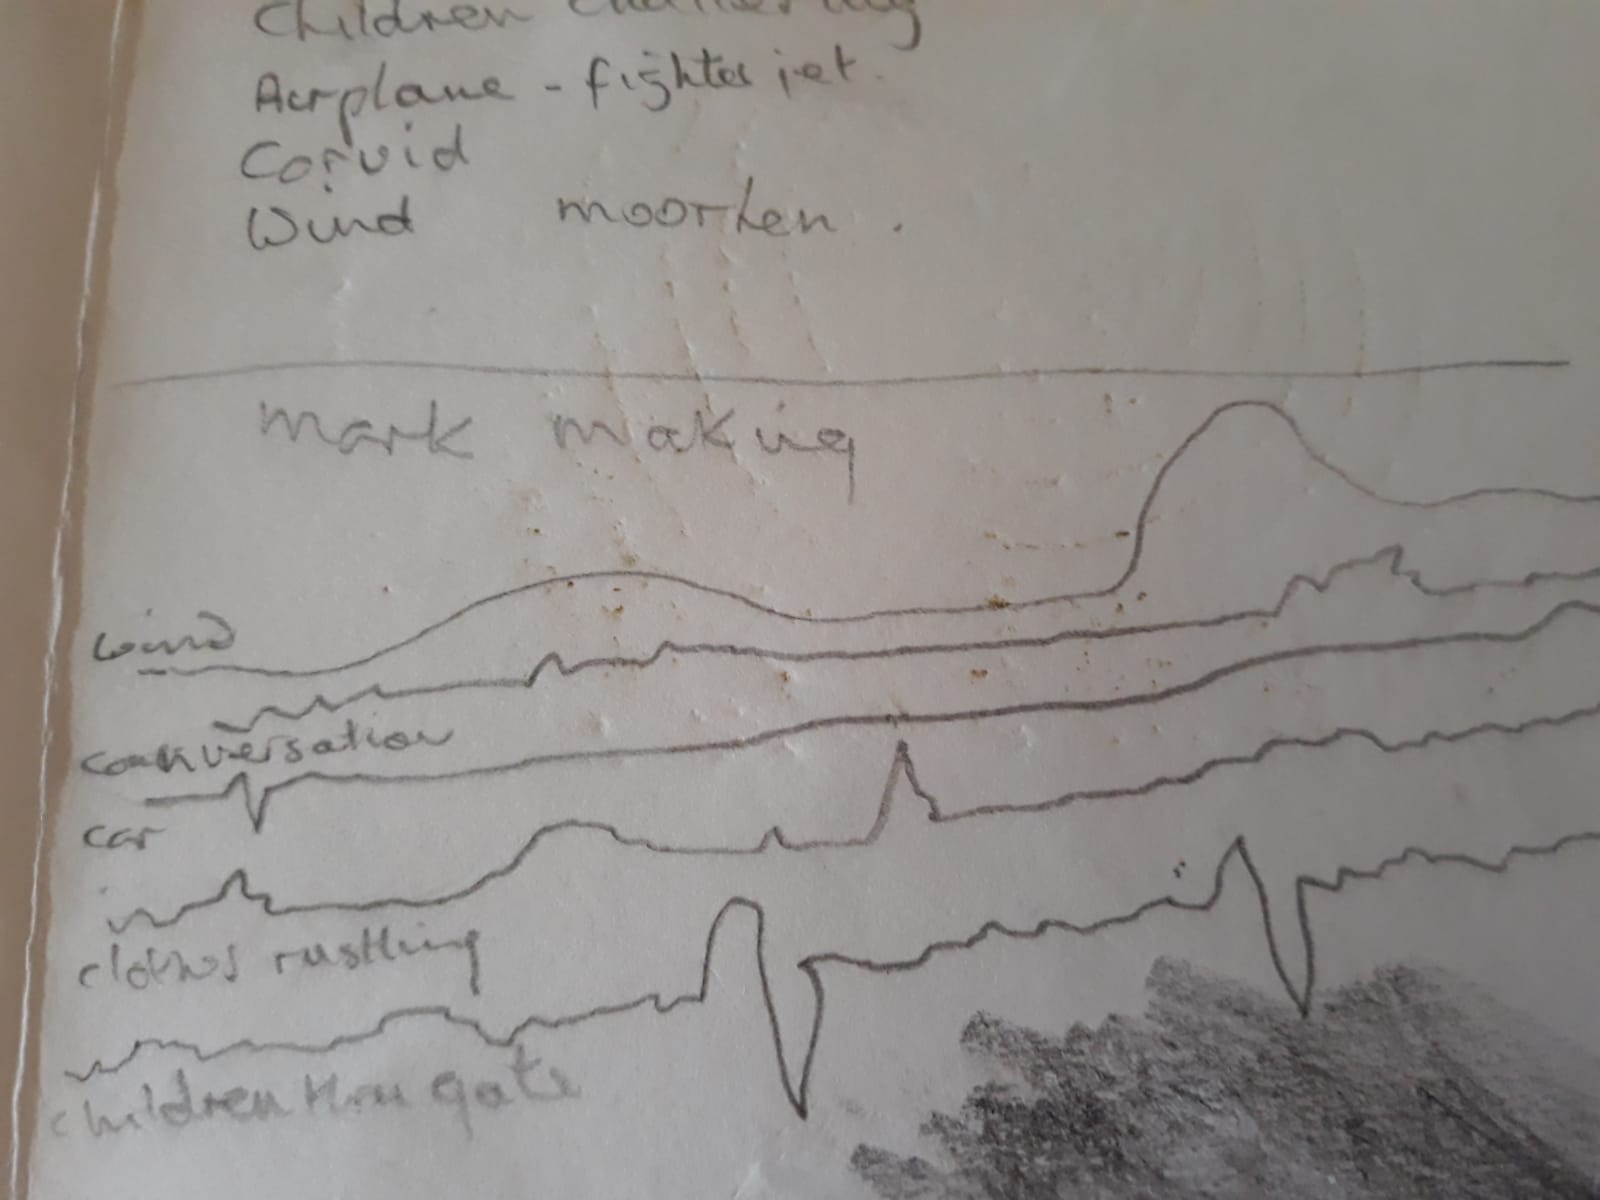 Children chattering
Airplane - fighter jet.
Corvid
Wind moorhen.
mark making
wind
conversation
car
clothes rustling
children thru gate